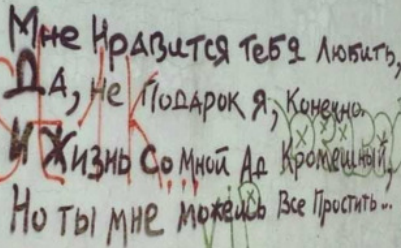 Мне Нравится тебя Любить,
Да, не Подарок я, Конечно.
И Жизнь Со Мной Ад Кромешный,
Но ты мне можешь Все Простить...